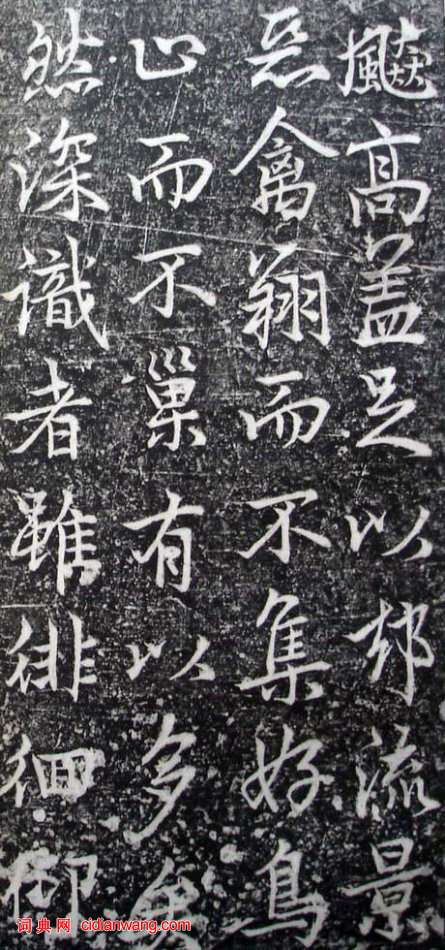 飈高盖足以却流景
惡禽翔而不集好鳥
止而不巢有以多矣
然深識者雖徘徊仰
词典网 cidianwang.com